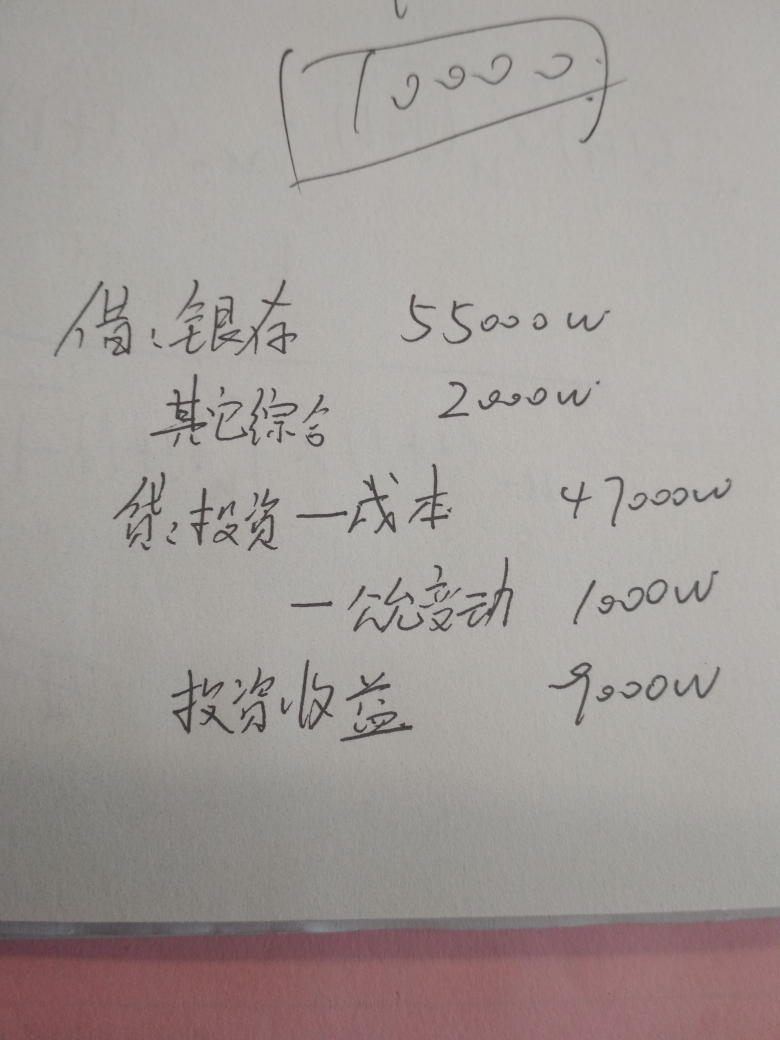 (10000)
借:银存 55000w
其它综合 2000w
贷:投资—成本 47000w
—公允变动 1000w
投资收益 9000w